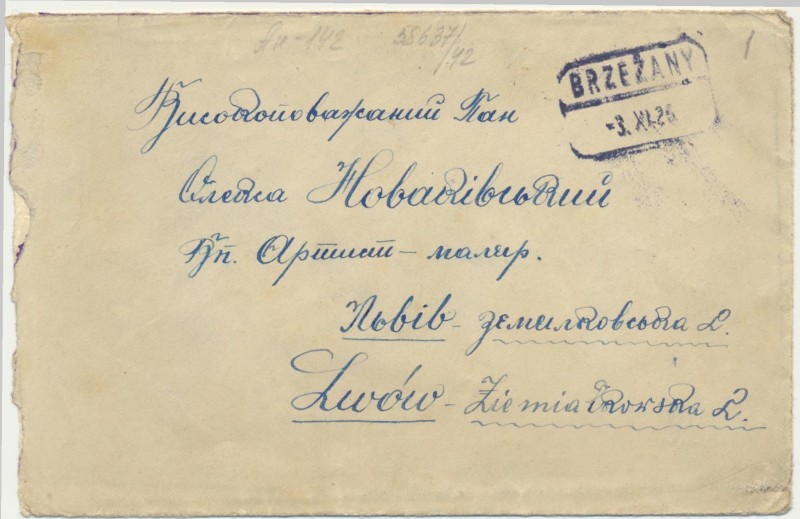 Ап-142 58637/42
1
BRZEŻANY
-3. XI. 26
Високоповажаний Пан
Олекса Новаківський
Вп. Артист - маляр.
Львів - Земялковська 2.
Lwów - Ziemiałkowska 2.